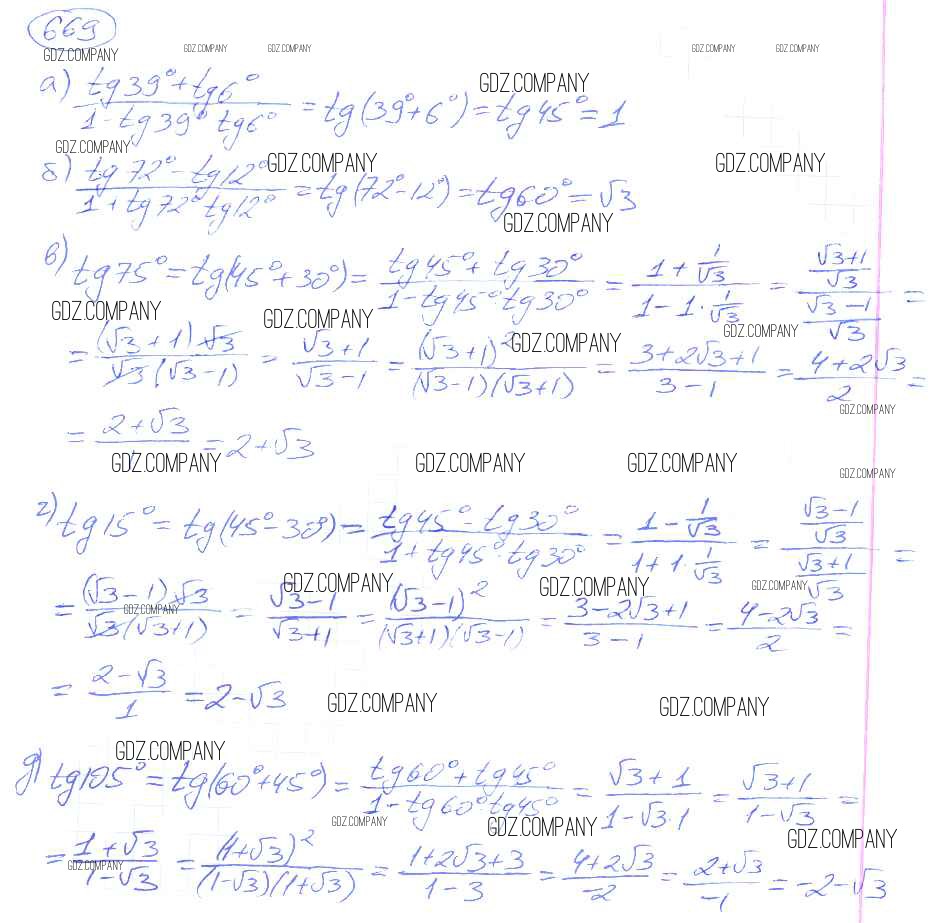 669
GDZ.COMPANY GDZ.COMPANY GDZ.COMPANY GDZ.COMPANY GDZ.COMPANY
а) (tg39° + tg6°)/(1 - tg39° tg6°) = tg(39° + 6°) = tg45° = 1
GDZ.COMPANY
GDZ.COMPANY
б) (tg72° - tg12°)/(1 + tg72° tg12°) = tg(72° - 12°) = tg60° = √3
GDZ.COMPANY GDZ.COMPANY
GDZ.COMPANY
в) tg75° = tg(45° + 30°) = (tg45° + tg30°)/(1 - tg45° · tg30°) = (1 + 1/√3)/(1 - 1 · 1/√3) = ((√3+1)/√3)/((√3-1)/√3) =
GDZ.COMPANY GDZ.COMPANY GDZ.COMPANY GDZ.COMPANY
= ((√3 + 1)√3)/(√3(√3 - 1)) = (√3 + 1)/(√3 - 1) = (√3 + 1)²/((√3 - 1)(√3 + 1)) = (3 + 2√3 + 1)/(3 - 1) = (4 + 2√3)/2 =
GDZ.COMPANY
= (2 + √3)/1 = 2 + √3
GDZ.COMPANY GDZ.COMPANY GDZ.COMPANY GDZ.COMPANY
г) tg15° = tg(45° - 30°) = (tg45° - tg30°)/(1 + tg45° · tg30°) = (1 - 1/√3)/(1 + 1 · 1/√3) = ((√3-1)/√3)/((√3+1)/√3) =
GDZ.COMPANY GDZ.COMPANY GDZ.COMPANY
= ((√3 - 1)√3)/(√3(√3 + 1)) = (√3 - 1)/(√3 + 1) = (√3 - 1)²/((√3 + 1)(√3 - 1)) = (3 - 2√3 + 1)/(3 - 1) = (4 - 2√3)/2 =
GDZ.COMPANY
= (2 - √3)/1 = 2 - √3
GDZ.COMPANY GDZ.COMPANY
GDZ.COMPANY
д) tg105° = tg(60° + 45°) = (tg60° + tg45°)/(1 - tg60° tg45°) = (√3 + 1)/(1 - √3 · 1) = (√3 + 1)/(1 - √3) =
GDZ.COMPANY GDZ.COMPANY GDZ.COMPANY
= (1 + √3)/(1 - √3) = (1 + √3)²/((1 - √3)(1 + √3)) = (1 + 2√3 + 3)/(1 - 3) = (4 + 2√3)/-2 = (2 + √3)/-1 = -2 - √3
GDZ.COMPANY